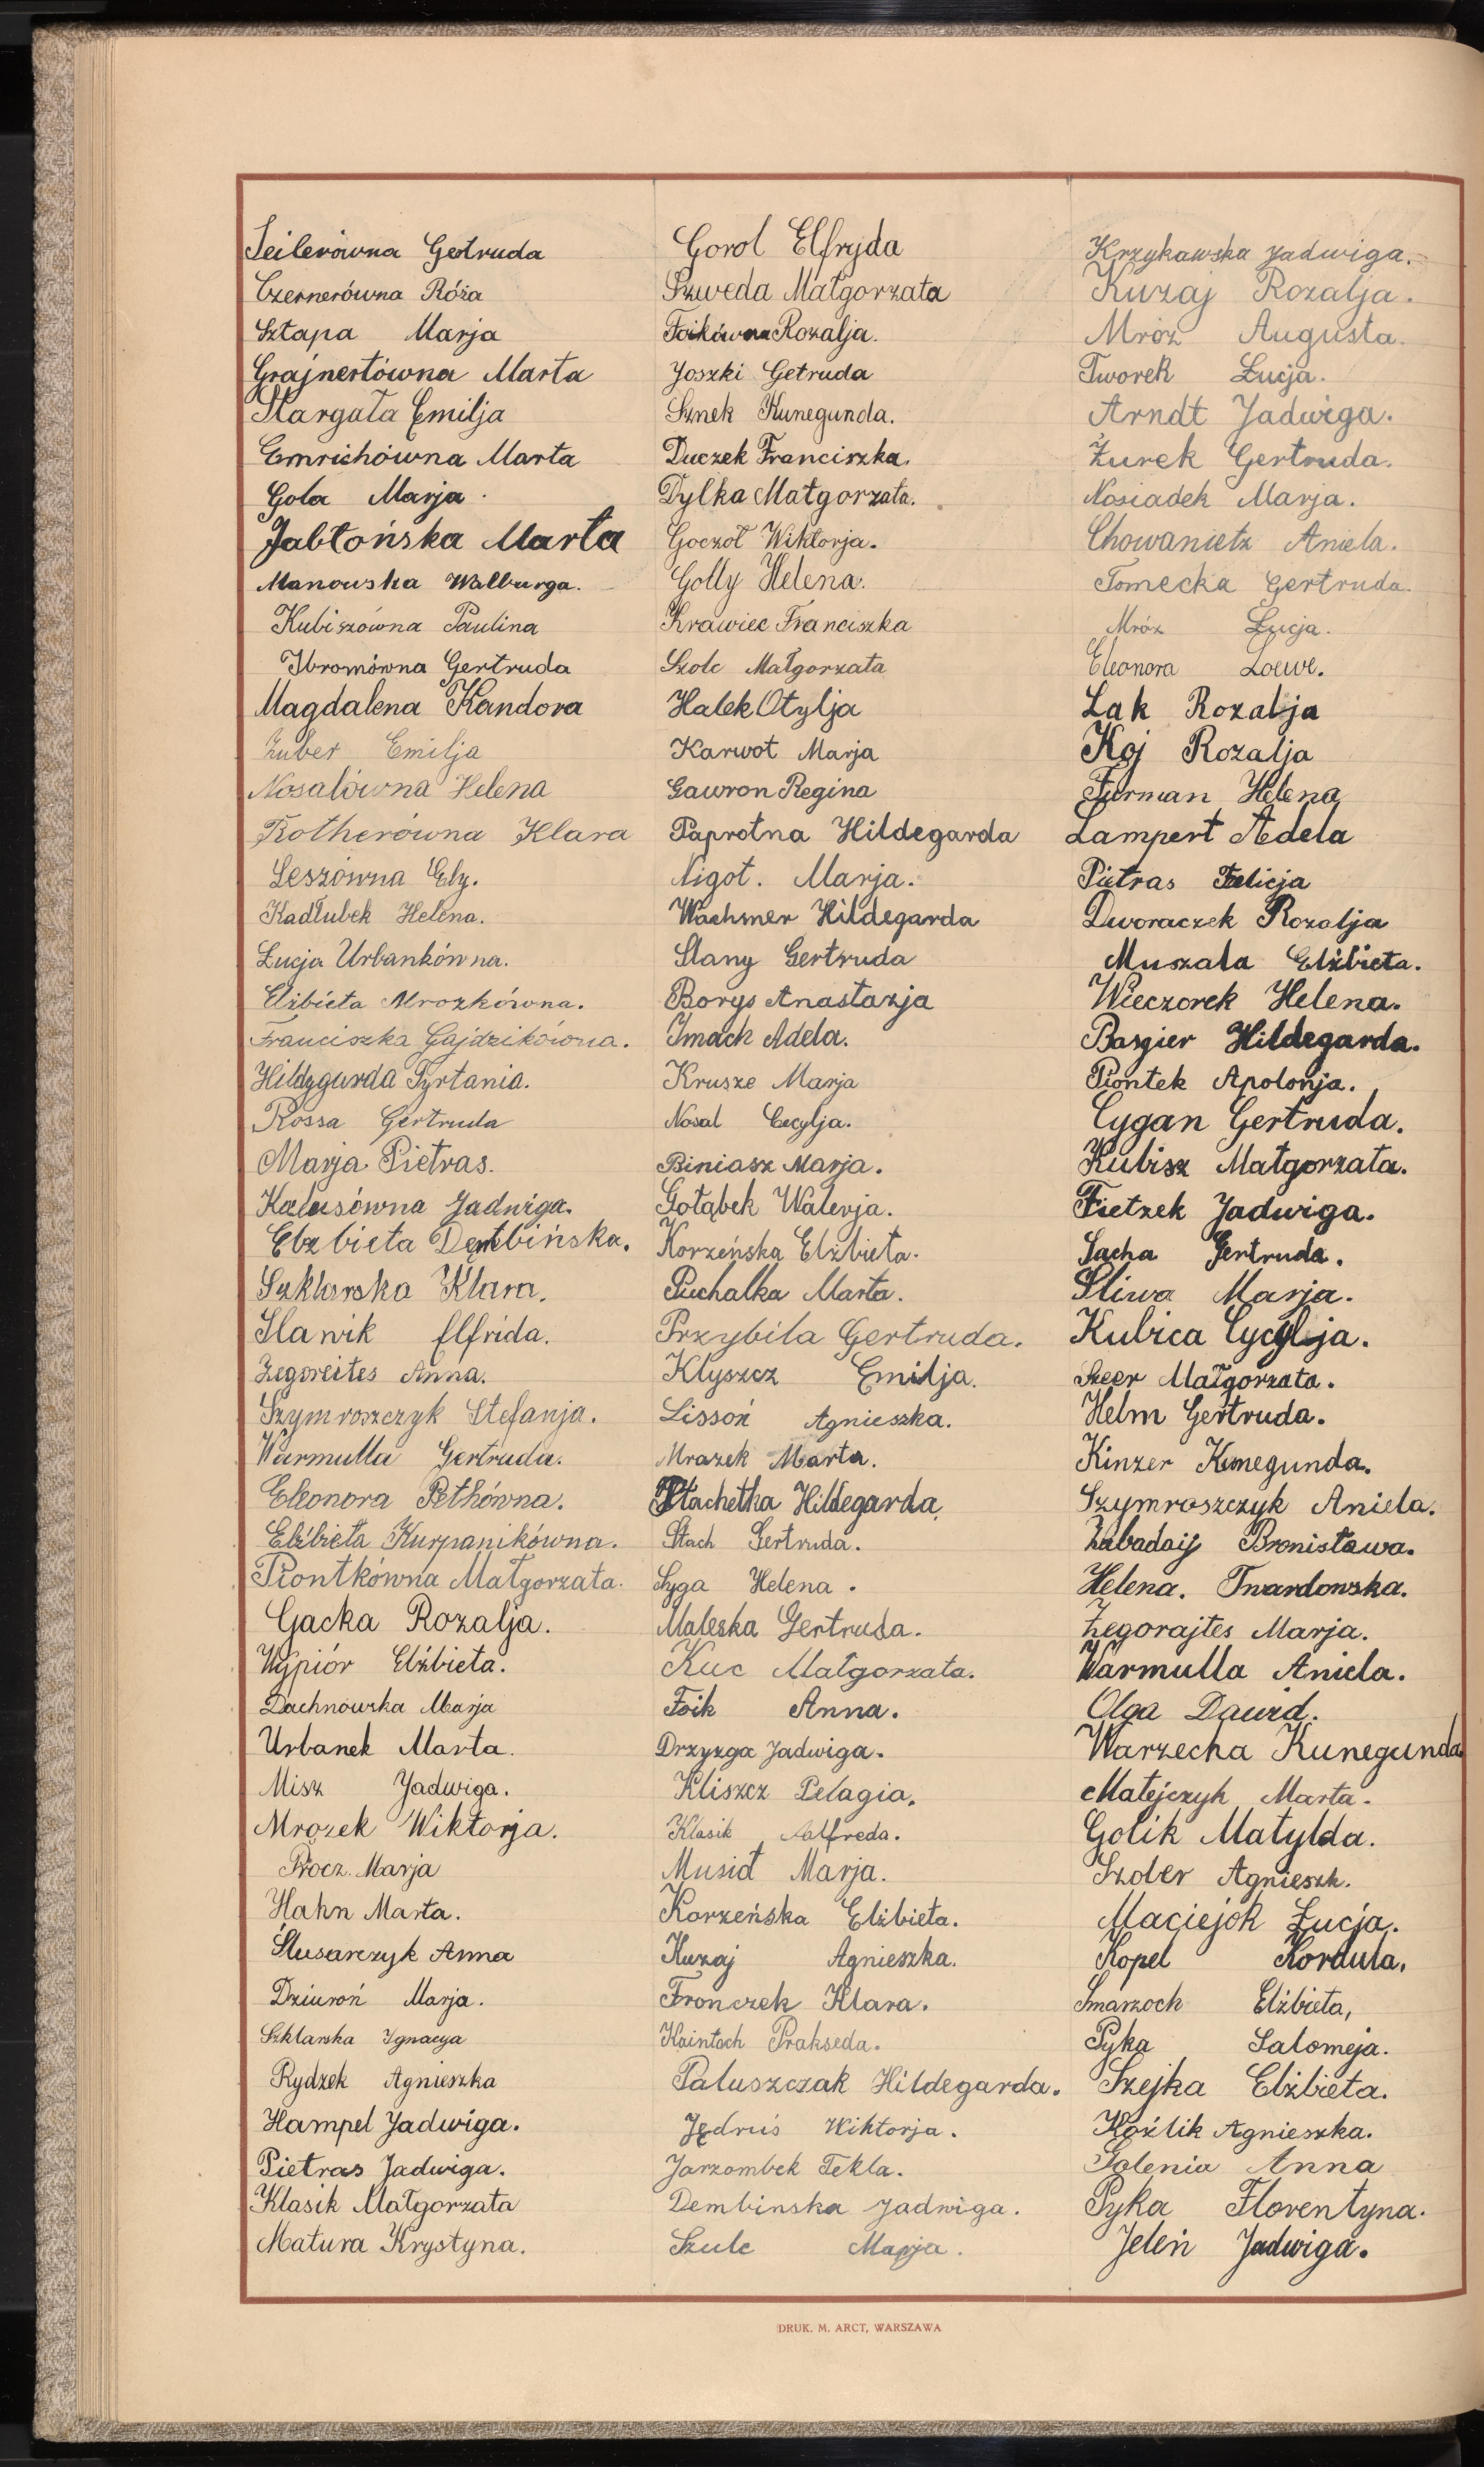 Seilerówna Gertruda
Czernerówna Róża
Sztapa Marja
Grajnertówna Marta
Stargała Emilja
Emrichówna Marta
Gola Marja
Jabłońska Marta
Manowska Walburga.
Kubiszówna Paulina
Ibromówna Gertruda
Magdalena Kandora
Zuber Emilja
Nosalówna Helena
Rotherówna Klara
Leszówna Ely.
Kadłubek Helena.
Łucja Urbankówna.
Elżbieta Mrozkówna.
Franciszka Gajdzikówna.
Hildygarda Tyrtania.
Rossa Gertruda
Marja Pietras.
Kalusówna Jadwiga.
Elzbieta Dembińska.
Szklarska Klara.
Slawik Elfrida.
Zegoreites Anna.
Szymroszczyk Stefanja.
Warmulla Gertruda.
Eleonora Pethówna.
Elżbieta Kurpanikówna.
Piontkówna Małgorzata.
Gacka Rozalja.
Wypiór Elżbieta.
Dachnowska Marja
Urbanek Marta.
Misz Jadwiga.
Mrozek Wiktorja.
Procz. Marja
Hahn Marta.
Ślusarczyk Anna
Dziuroń Marja.
Szklarska Ignacya
Rydzek Agnieszka
Hampel Jadwiga.
Pietras Jadwiga.
Klasik Małgorzata
Matura Krystyna.
Gorol Elfryda
Szweda Małgorzata
Foikówna Rozalja.
Joszki Getruda
Sznek Kunegunda.
Duczek Franciszka.
Dylka Małgorzata.
Goczoł Wiktorja.
Golly Helena.
Krawiec Franciszka
Szolc Małgorzata
Halek Otylja
Karwot Marja
Gawron Regina
Paprotna Hildegarda
Nigot. Marja.
Wachsner Hildegarda
Slany Gertruda
Borys Anastazja
Imach Adela.
Krusze Marja
Nosal Cecylja.
Biniasz Marja.
Gołąbek Walerja.
Korzeńska Elżbieta.
Puchalka Marta.
Przybila Gertruda.
Klyszcz Emilja.
Lissoń Agnieszka.
Mrazek Marta.
Stachetka Hildegarda.
Stach Gertruda.
Syga Helena.
Maleska Gertruda.
Kuc Małgorzata.
Foik Anna.
Drzyzga Jadwiga.
Kliszcz Pelagia.
Klasik Aalfreda.
Musioł Marja.
Korzeńska Elżbieta.
Kuzaj Agnieszka.
Fronczek Klara.
Kaintoch Prakseda.
Paluszczak Hildegarda.
Jędruś Wiktorja.
Jarzombek Tekla.
Dembinska Jadwiga.
Szulc Marja.
Krzykawska Jadwiga.
Kuzaj Rozalja.
Mróz Augusta.
Tworek Łucja.
Arndt Jadwiga.
Żurek Gertruda.
Nosiadek Marja.
Chowanietz Aniela.
Tomecka Gertruda.
Mróz Łucja.
Eleonora Loewe.
Lak Rozalja
Koj Rozalja
Furman Helena
Lampert Adela
Pietras Felicja
Dworaczek Rozalja
Muszala Elżbieta.
Wieczorek Helena.
Basgier Hildegarda.
Piontek Apolonja.
Cygan Gertruda.
Kubisz Małgorzata.
Fietzek Jadwiga.
Sacha Gertruda.
Sliwa Marja.
Kubica Cycylja.
Szeer Małgorzata.
Helm Gertruda.
Kinzer Kunegunda.
Szymroszczyk Aniela.
Zabadaij Bronisława.
Helena. Twardowska.
Żegorajtes Marja.
Warmulla Aniela.
Olga Dawid.
Warzecha Kunegunda.
Matejczyk Marta.
Golik Matylda.
Szoler Agnieszk.
Maciejok Łucja.
Kopel Kordula.
Smarzoch Elżbieta,
Pyka Salomeja.
Szejka Elżbieta.
Koźlik Agnieszka.
Golenia Anna
Pyka Florentyna.
Jeleń Jadwiga.
DRUK. M. ARCT, WARSZAWA